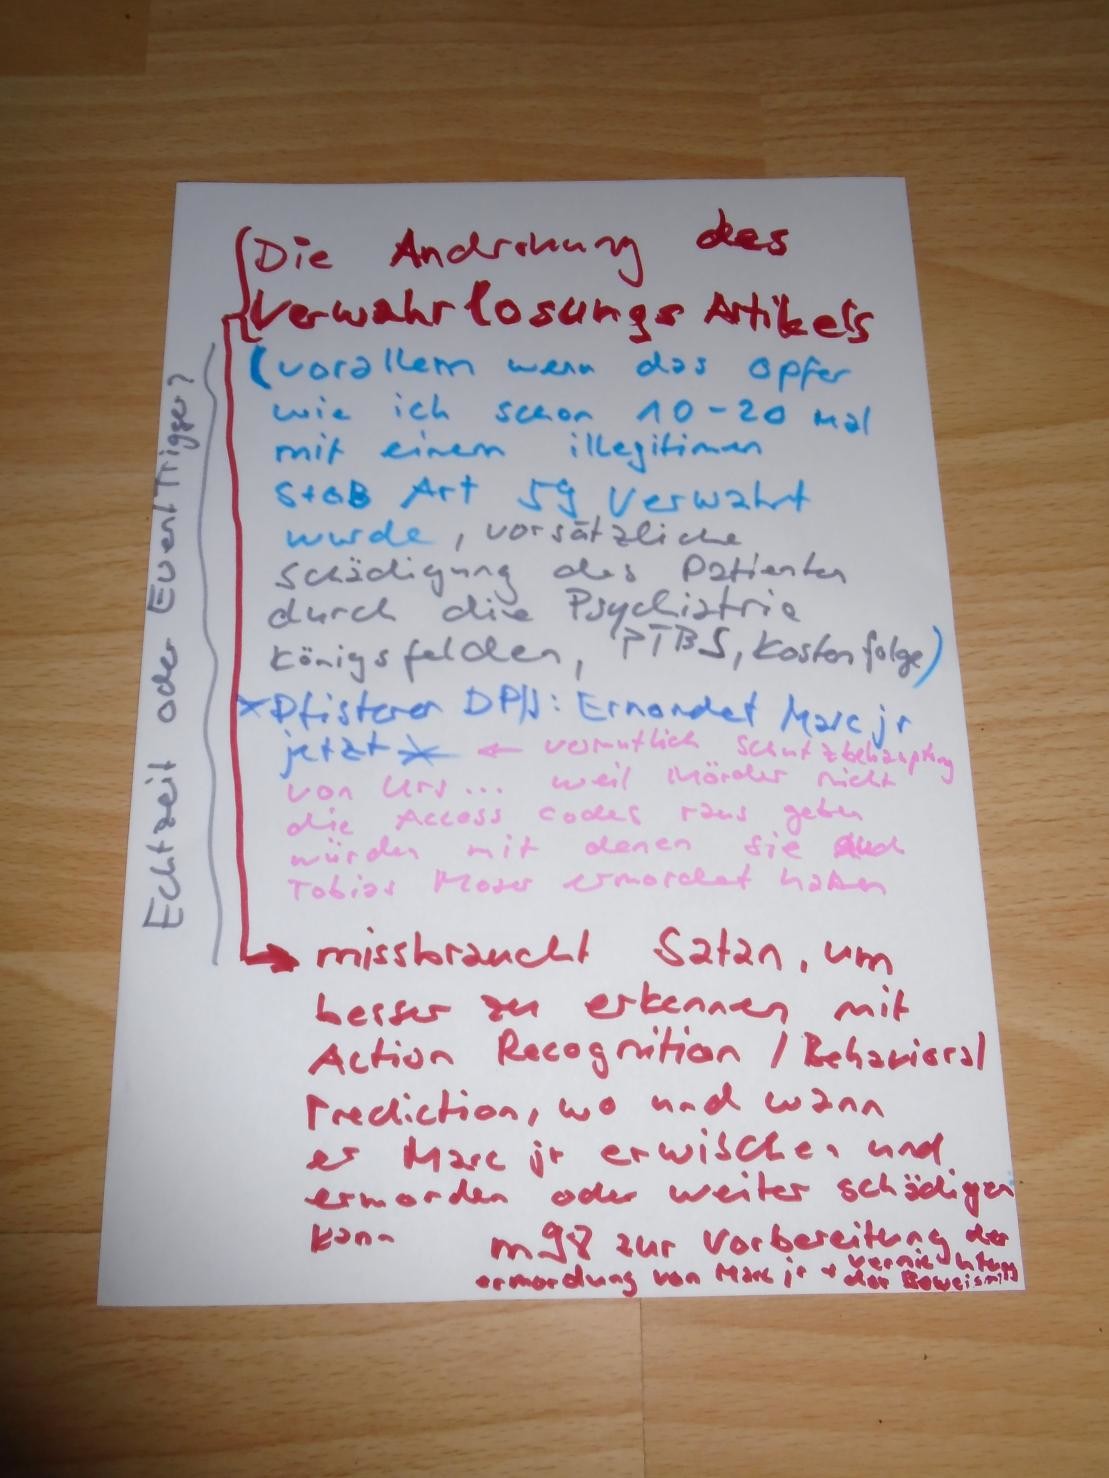 Die Androhung des
Verwahrlosungs Artikels
(vorallem wenn das opfer
wie ich schon 10-20 mal
mit einem illegitimen
StGB Art 59 Verwahrt
wurde, vorsätzliche
schädigung des Patienten
durch die Psychiatrie
Königsfelden, PTBS, Kostenfolge)
Pfisterer DPJ: Ermordet Marc jr
jetzt ← vermutlich Schutzbehauptung
von Urs... weil Mörder nicht
die Access codes raus geben
würden mit denen sie
Tobias Moser ermordet haben
→ missbraucht Satan, um
besser zu erkennen mit
Action Recognition / Behavioral
Prediction, wo und wann
er Marc jr erwischen und
ermorden oder weiter schädigen
kann
zur Vorbereitung der
ermordung von Marc jr + Vernichtung
der Beweismittel
Echtzeit oder Event Trigger?